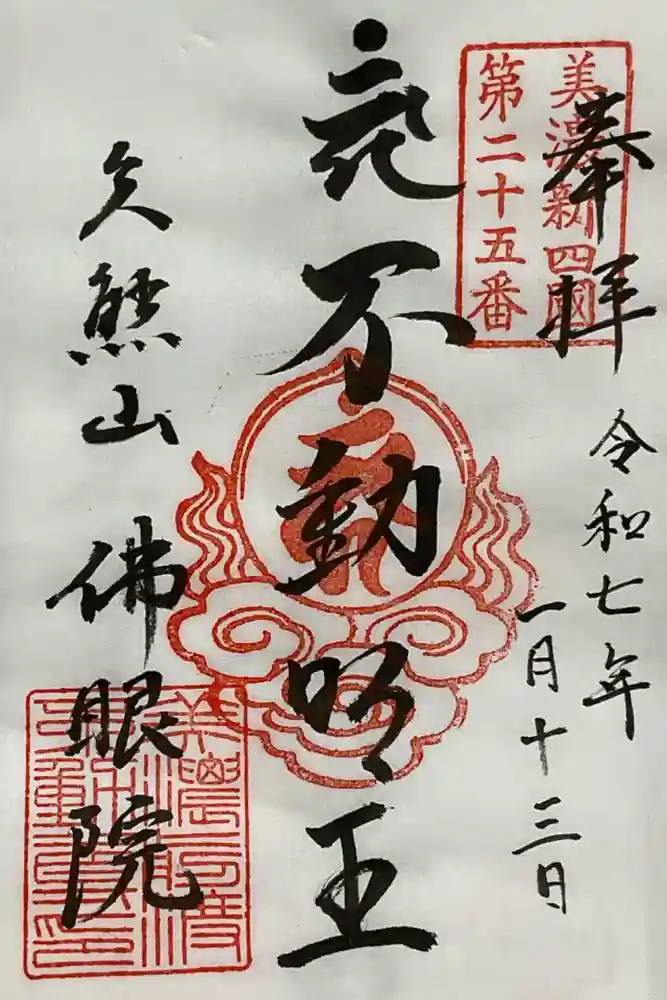 美濃新四國
第二十五番
奉拝
令和七年
一月十三日
不動明王
久熊山 佛眼院